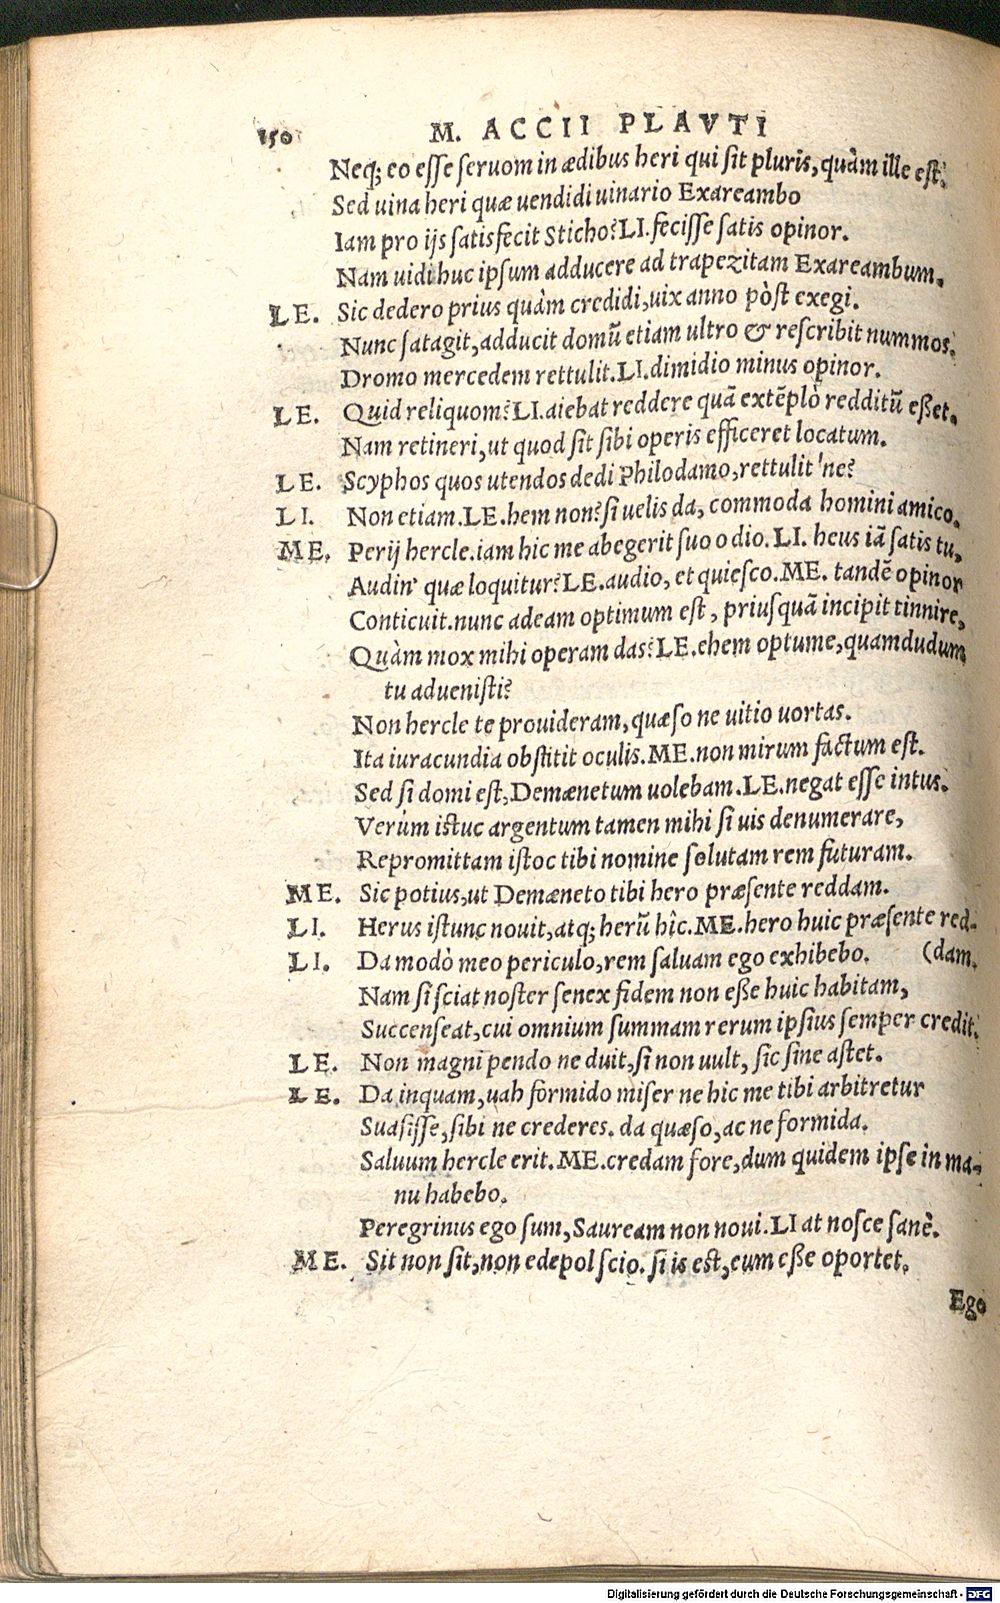 150 M. ACCII PLAVTI
Neq; eo esse seruom in ædibus heri qui sit pluris, quàm ille est.
Sed uina heri quæ uendidi uinario Exareambo
Iam pro ijs satisfecit Sticho? LI. fecisse satis opinor.
Nam uidi huc ipsum adducere ad trapezitam Exareambum.
LE. Sic dedero prius quàm credidi, uix anno pòst exegi.
Nunc satagit, adducit domū etiam ultro & rescribit nummos.
Dromo mercedem rettulit. LI. dimidio minus opinor.
LE. Quid reliquom? LI. aiebat reddere quā extēplò redditū eßet.
Nam retineri, ut quod sit sibi operis efficeret locatum.
LE. Scyphos quos utendos dedi Philodamo, rettulit 'ne?
LI. Non etiam. LE. hem non? si uelis da, commoda homini amico.
ME. Perij hercle. iam hic me abegerit suo odio. LI. heus iā satis tu,
Audin' quæ loquitur? LE. audio, et quiesco. ME. tandē opinor
Conticuit. nunc adeam optimum est, priusquā incipit tinnire,
Quàm mox mihi operam das? LE. ehem optume, quamdudum
tu aduenisti?
Non hercle te prouideram, quæso ne uitio uortas.
Ita iuracundia obstitit oculis. ME. non mirum factum est.
Sed si domi est, Demænetum uolebam. LE. negat esse intus.
Verùm istuc argentum tamen mihi si uis denumerare,
Repromittam istoc tibi nomine solutam rem futuram.
ME. Sic potius, ut Demæneto tibi hero præsente reddam.
LI. Herus istunc nouit, atq; herū hîc. ME. hero huic præsente red-
LI. Da modò meo periculo, rem saluam ego exhibebo. (dam.
Nam si sciat noster senex fidem non eße huic habitam,
Succenseat, cui omnium summam rerum ipsius semper credit.
LE. Non magni pendo ne duit, si non uult, sic sine astet.
LE. Da inquam, uah formido miser ne hic me tibi arbitretur
Suasisse, sibi ne crederes. da quæso, ac ne formida.
Saluum hercle erit. ME. credam fore, dum quidem ipse in ma-
nu habebo.
Peregrinus ego sum, Sauream non noui. LI at nosce sanè.
ME. Sit non sit, non edepol scio. si is est, eum eße oportet.
Ego
Digitalisierung gefördert durch die Deutsche Forschungsgemeinschaft - DFG